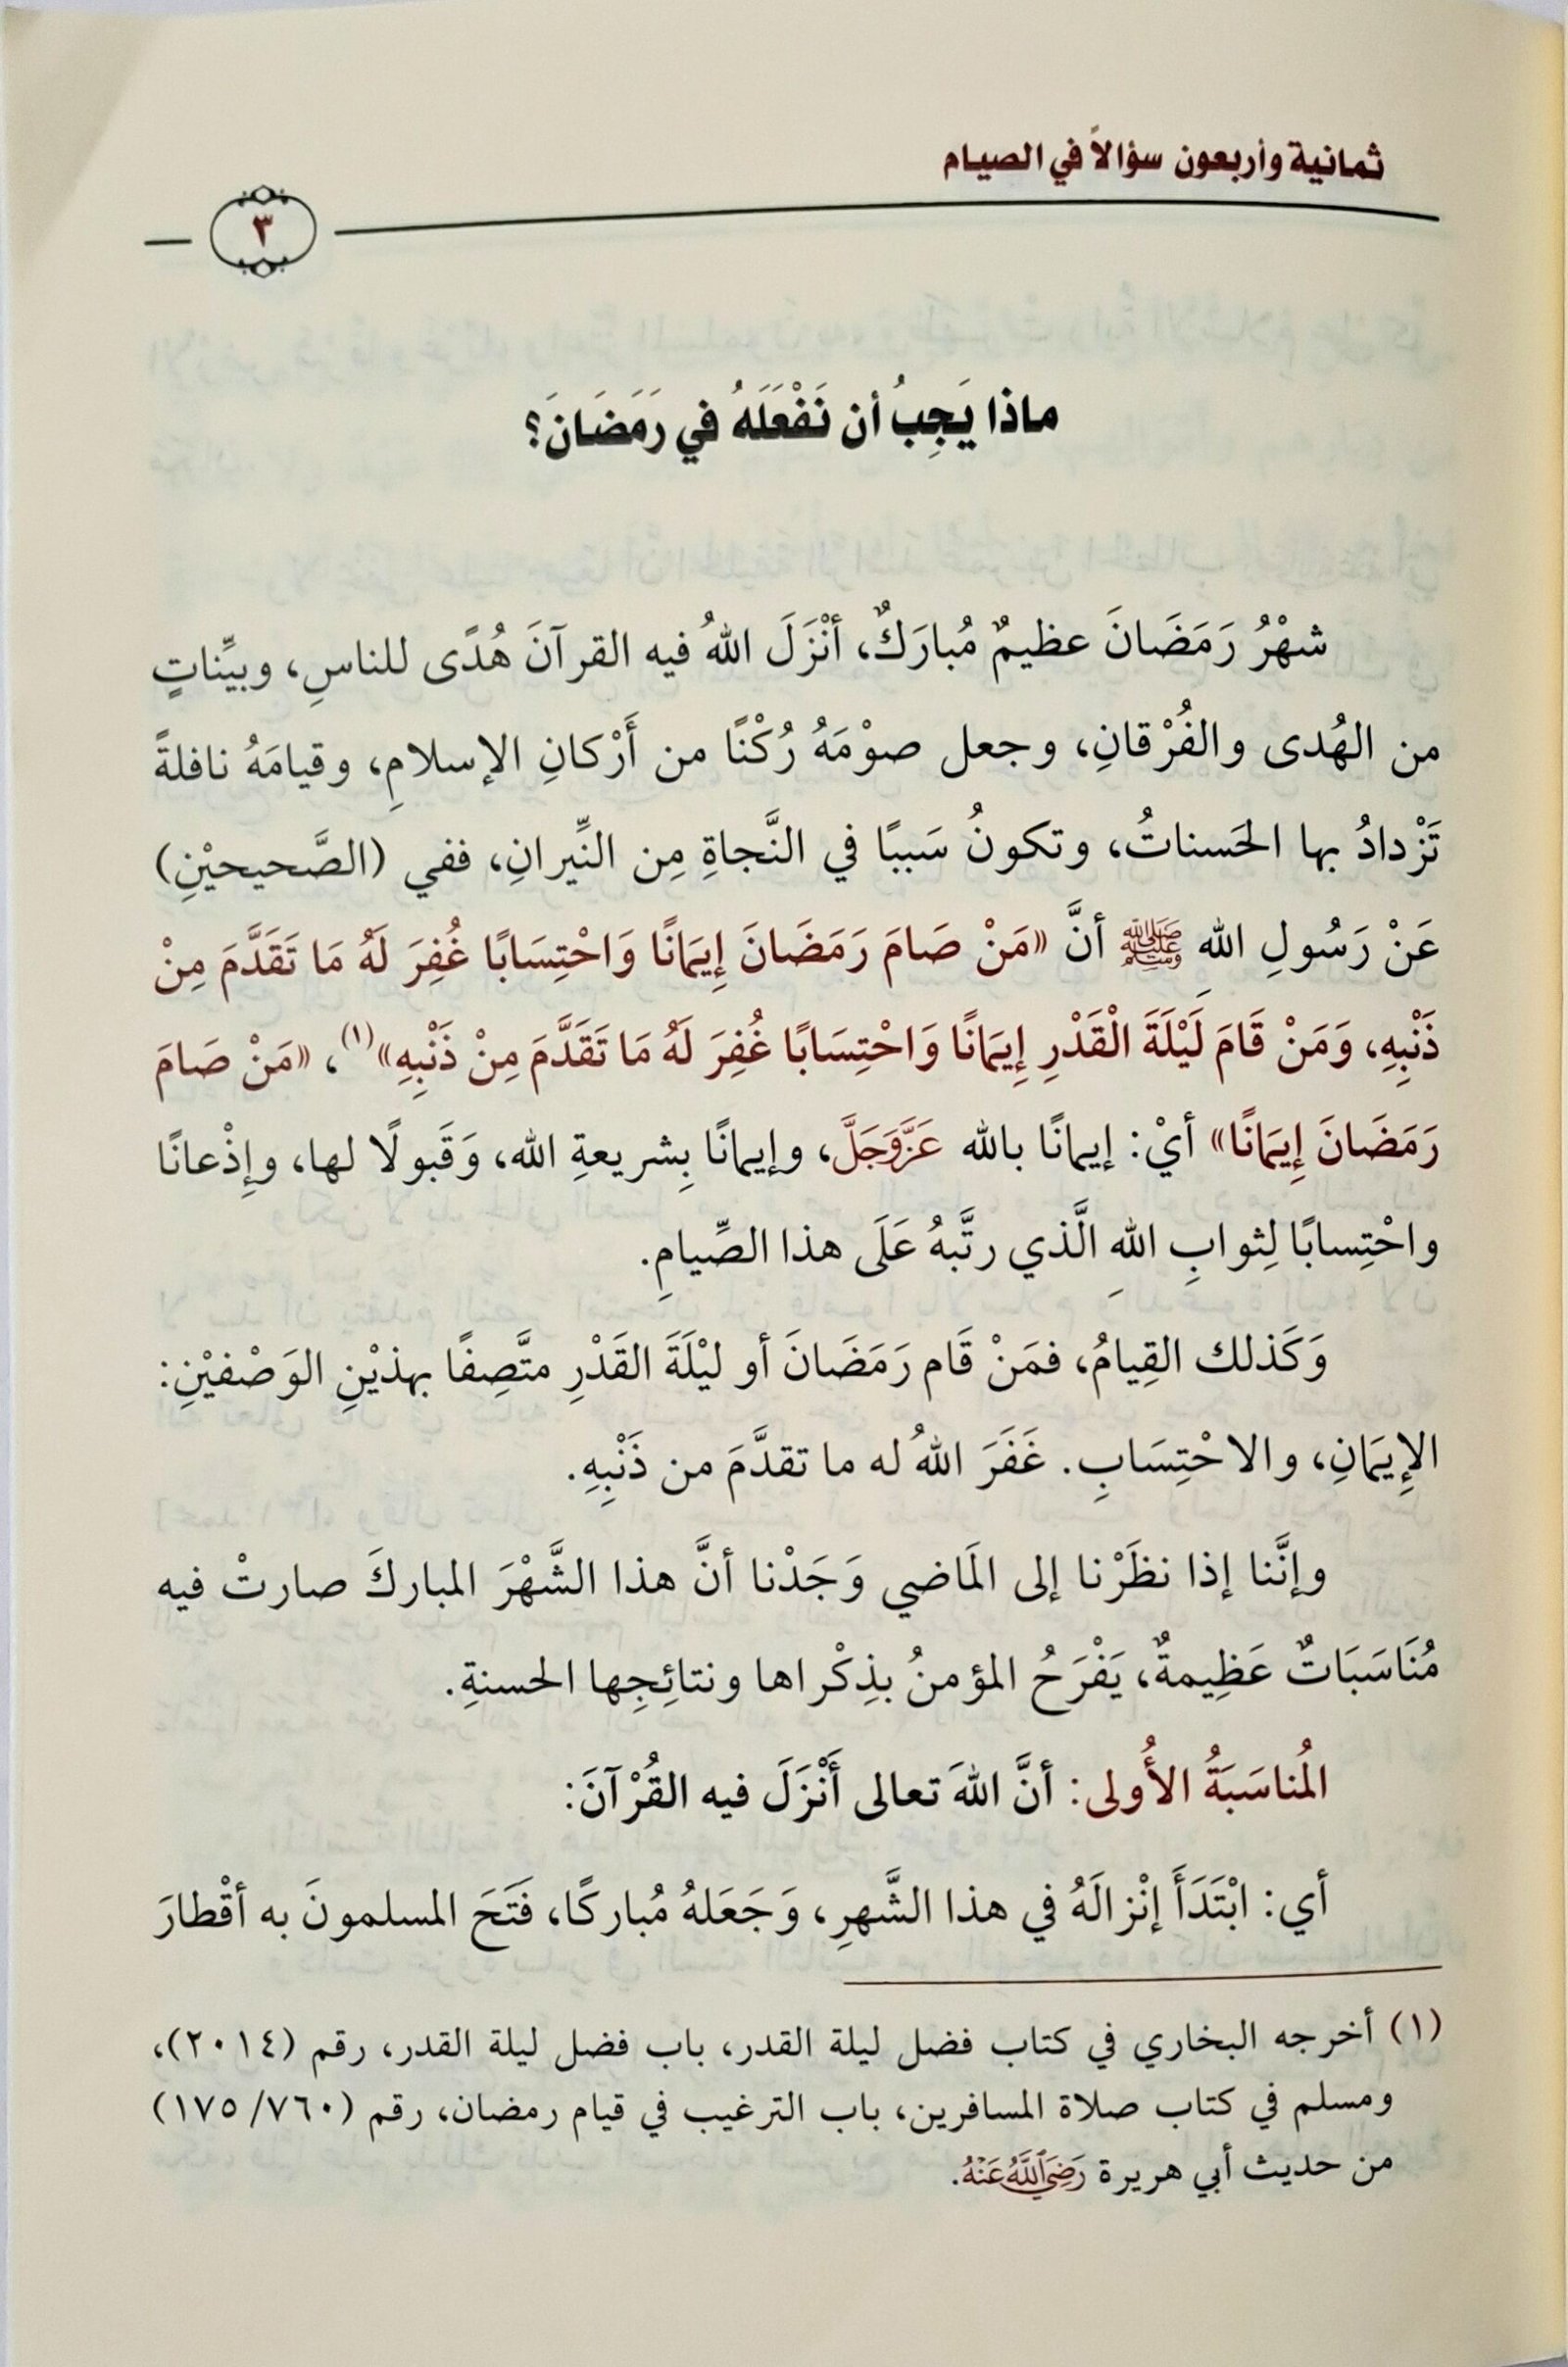 ثمانية وأربعون سؤالاً في الصيام
٣
ماذا يَجِبُ أن نَفْعَلَهُ في رَمَضَانَ؟
شهْرُ رَمَضَانَ عظيمٌ مُبارَكٌ، أنْزَلَ اللهُ فيه القرآنَ هُدًى للناسِ، وبيِّناتٍ
من الهُدى والفُرْقانِ، وجعل صوْمَهُ رُكْنًا من أَرْكانِ الإسلامِ، وقيامَهُ نافلةً
تَزْدادُ بها الحَسناتُ، وتكونُ سَببًا في النَّجاةِ مِن النِّيرانِ، ففي (الصَّحيحيْنِ)
عَنْ رَسُولِ اللهِ ﷺ أنَّ «مَنْ صَامَ رَمَضَانَ إِيمَانًا وَاحْتِسَابًا غُفِرَ لَهُ مَا تَقَدَّمَ مِنْ
ذَنْبِهِ، وَمَنْ قَامَ لَيْلَةَ الْقَدْرِ إِيمَانًا وَاحْتِسَابًا غُفِرَ لَهُ مَا تَقَدَّمَ مِنْ ذَنْبِهِ»(١)، «مَنْ صَامَ
رَمَضَانَ إِيمَانًا» أيْ: إيمانًا بالله عَزَّوَجَلَّ، وإيمانًا بِشريعةِ الله، وَقَبولًا لها، وإِذْعانًا
واحْتِسابًا لِثوابِ اللهِ الَّذي رتَّبهُ عَلَى هذا الصِّيامِ.
وَكَذلك القِيامُ، فمَنْ قَام رَمَضَانَ أو ليْلَةَ القَدْرِ متَّصِفًا بهذيْنِ الوَصْفيْنِ:
الإِيمَانِ، والاحْتِسَابِ. غَفَرَ اللهُ له ما تقدَّمَ من ذَنْبِهِ.
وإنَّنا إذا نظَرْنا إلى المَاضي وَجَدْنا أنَّ هذا الشَّهْرَ المباركَ صارتْ فيه
مُنَاسَبَاتٌ عَظِيمةٌ، يَفْرَحُ المؤمنُ بذِكْراها ونتائِجِها الحسنةِ.
المُناسَبَةُ الأُولى: أنَّ اللهَ تعالى أَنْزَلَ فيه القُرْآنَ:
أي: ابْتَدَأَ إنْزالَهُ في هذا الشَّهرِ، وَجَعَلهُ مُباركًا، فَتَحَ المسلمونَ به أقْطارَ
(١) أخرجه البخاري في كتاب فضل ليلة القدر، باب فضل ليلة القدر، رقم (٢٠١٤)،
ومسلم في كتاب صلاة المسافرين، باب الترغيب في قيام رمضان، رقم (٧٦٠/ ١٧٥)
من حديث أبي هريرة رَضِيَ اللَّهُ عَنْهُ.